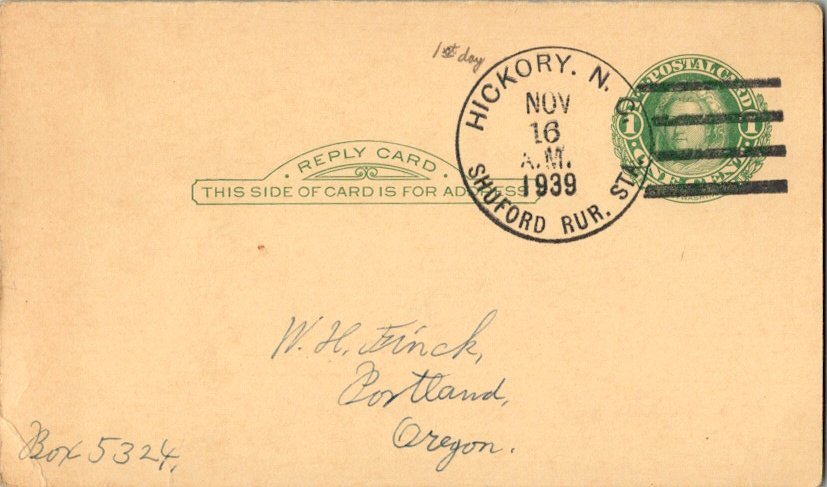 1st day
HICKORY. N. C.
NOV
16
A.M.
1939
SHUFORD RUR. STA.
POSTAL CARD
1 1
ONE CENT
· REPLY CARD ·
THIS SIDE OF CARD IS FOR ADDRESS
W. H. Finck,
Portland,
Oregon.
Box 5324,